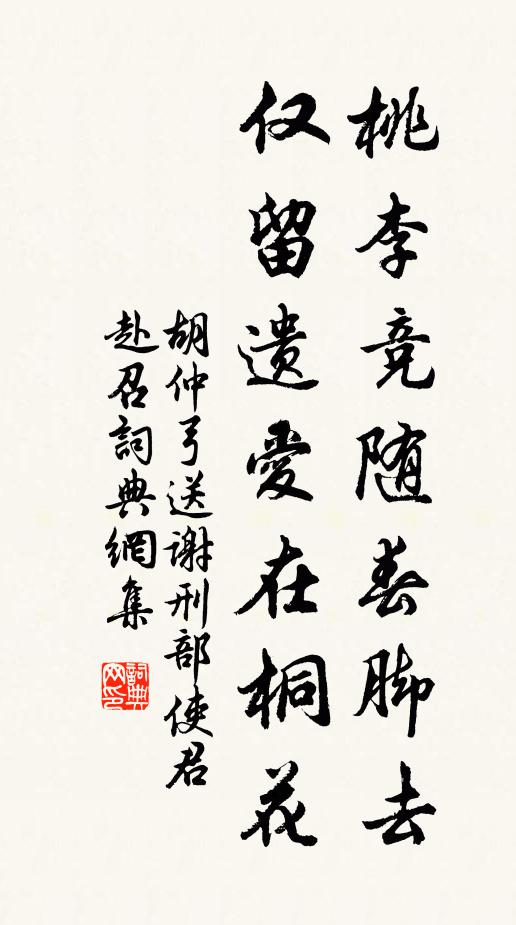 桃李竞随春脚去
仅留遗愛在桐花
胡仲弓送谢刑部使君
赴召詞典網集
詞典网印